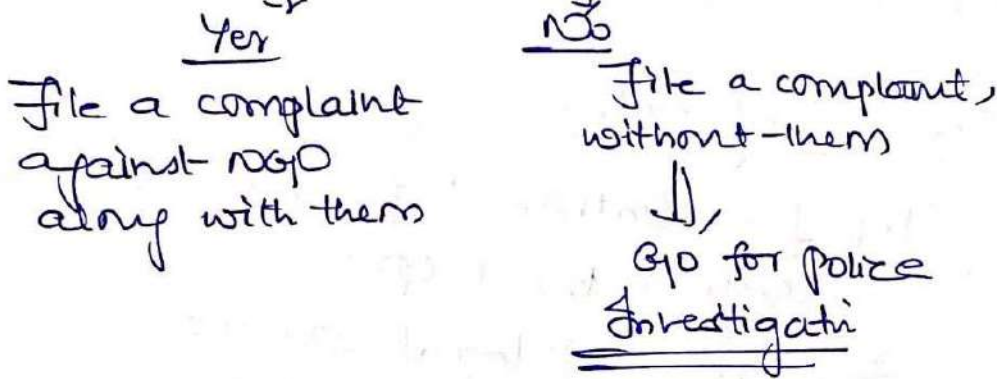 Yes
File a complaint
against NGO
along with them
No
File a complaint,
without them
⇓
Go for police
Investigati